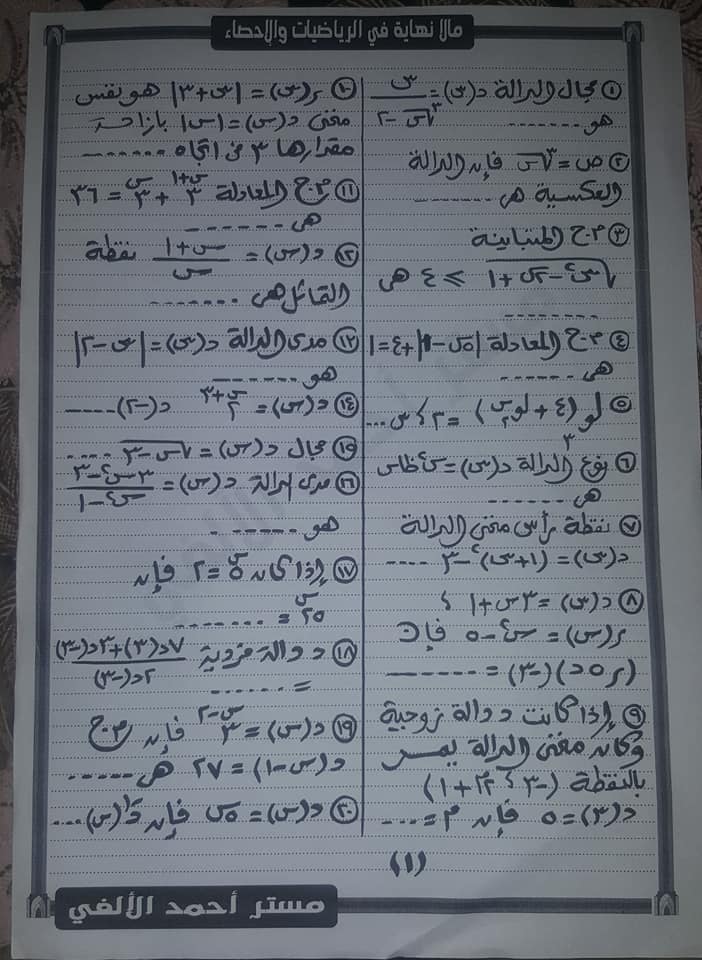 مالا نهاية في الرياضيات والإحصاء
١ مجال الدالة د(س) = س / ³√س - ٢
هو -------
٢ ص = ³√س فإن الدالة
العكسية هى --------
٣ م.ح المتباينة
√(س² - ٢س + ١) ≥ ٤ هى
--------
٤ م.ح المعادلة | + ٤ = ١
هى ------
٥ لو (٤ + لو₂س) = ٢ ، س ...
٣
٦ نوع الدالة د(س) = س² ظاس
هى ------
٧ نقطة رأس منحنى الدالة
د(س) = (١+س)² - ٣ ----
٨ د(س) = ٣س + ١ ،
ر(س) = س² - ٥ فإن
(ر∘د)(-٣) = -------
٩ إذا كانت د دالة زوجية
وكان منحنى الدالة يمر
بالنقطة (-٣ ، ٢م + ١)
د(٣) = ٥ فإن م = ...
١٠ ر(س) = |س+٣| هو نفس
منحنى د(س) = |س| بإزاحة
مقدارها ٣ فى اتجاه -------
١١ م.ح المعادلة ٣^(س+١) + ٣^س = ٣٦
هى -------
١٢ د(س) = س+١ / س نقطة
التماثل هى -------
١٣ مدى الدالة د(س) = |س-٢|
هو -------
١٤ د(س) = ٢^(س+٣) د(-٢) ----
١٥ مجال د(س) = √س-٣ ----
١٦ مدى الدالة د(س) = ٣س²-٣ / س²-١
هو -------
١٧ إذا كان ٥^س = ٢ فإن
٢٥^س = -------
١٨ د دالة فردية ٧د(٣)+٣د(-٣) / ٢د(-٣)
= ------
١٩ د(س) = ٣^(س-٢) فإن م.ح
د(س-١) = ٢٧ هى -----
٢٠ د(س) = ٥س فإن د⁻¹(س) ...
(١)
مستر أحمد الألفي